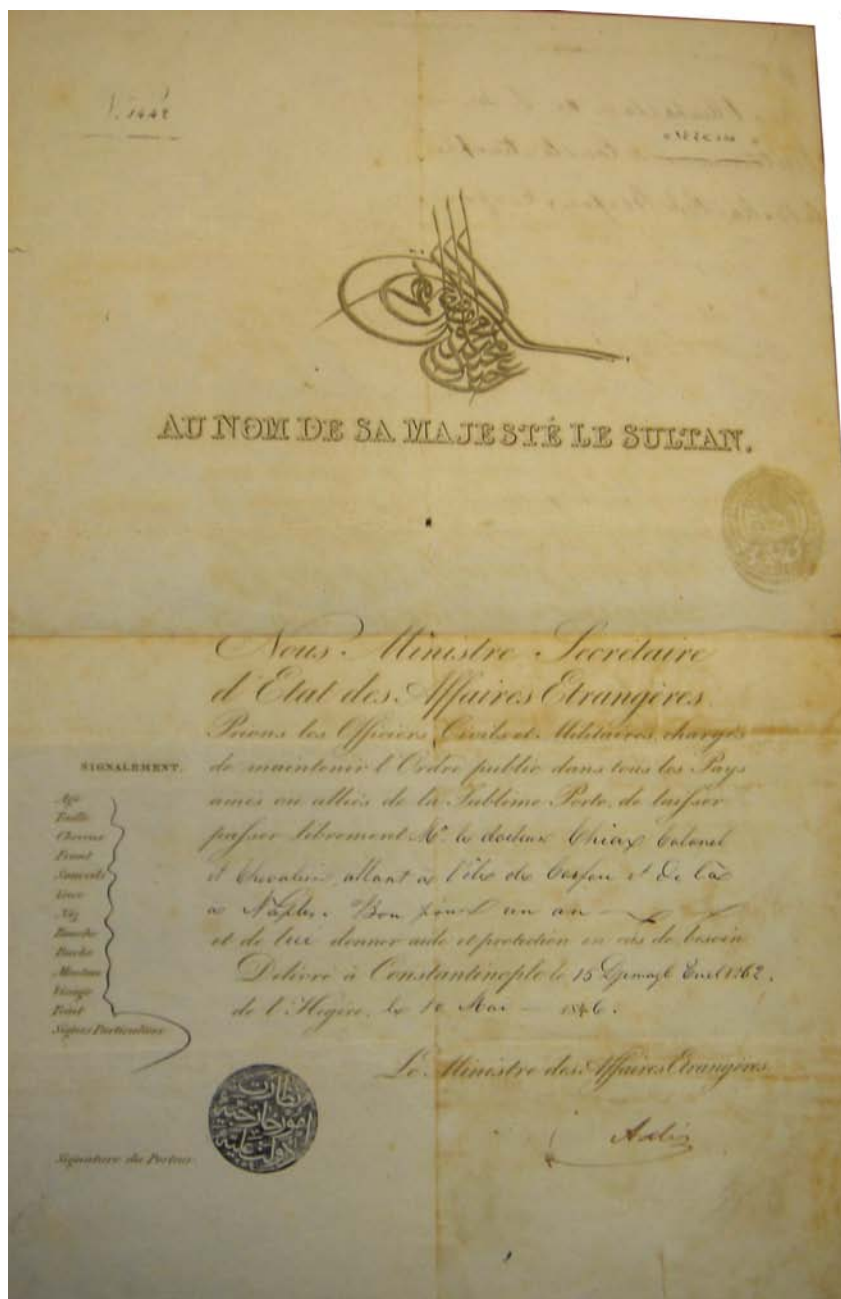 N. 1442
AU NOM DE SA MAJESTÉ LE SULTAN.
Nous Ministre Secrétaire
d'Etat des Affaires Etrangères
Prions les Officiers Civils et Militaires chargés
de maintenir l'Ordre public dans tous les Pays
amis ou alliés de la Sublime Porte, de laisser
passer librement Mr. le docteur Colonel
et Chevalier, allant à l'île de Corfou et de là
à Naples. Bon pour un an
et de lui donner aide et protection en cas de besoin
Délivré à Constantinople le 15 1262.
de l'Hégire, le 10 Mai 1846.
Le Ministre des Affaires Etrangères
SIGNALEMENT.
Age
Taille
Cheveux
Front
Sourcils
Yeux
Nez
Bouche
Barbe
Menton
Visage
Teint
Signes Particuliers
نظارت
امور خارجيه
دولت عليه
Signature du Porteur